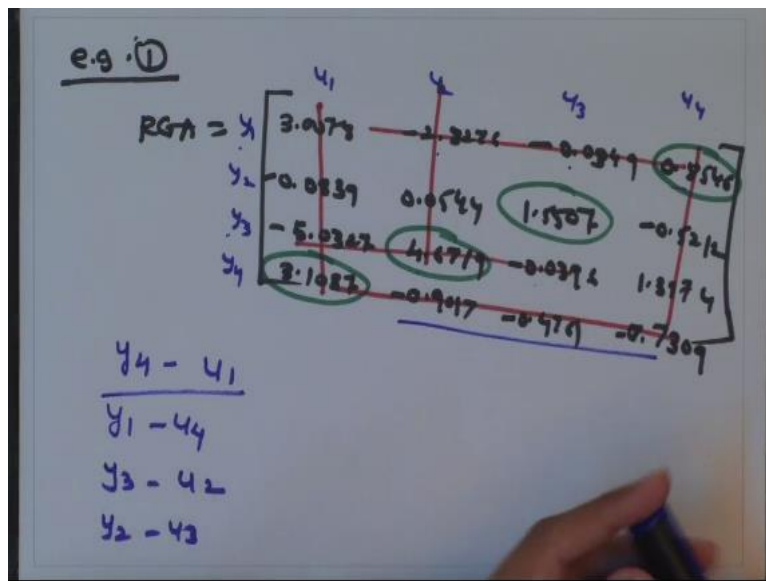 e.g. ①
u1 u2 u3 u4
RGA = y1 3.0079 -2.8276 -0.0349 0.8546
y2 -0.0839 0.0544 1.5507 -0.5212
y3 -5.0327 4.6749 -0.0396 1.3974
y4 3.1087 -0.9017 -0.4761 -0.7309
y4 - u1
y1 - u4
y3 - u2
y2 - u3